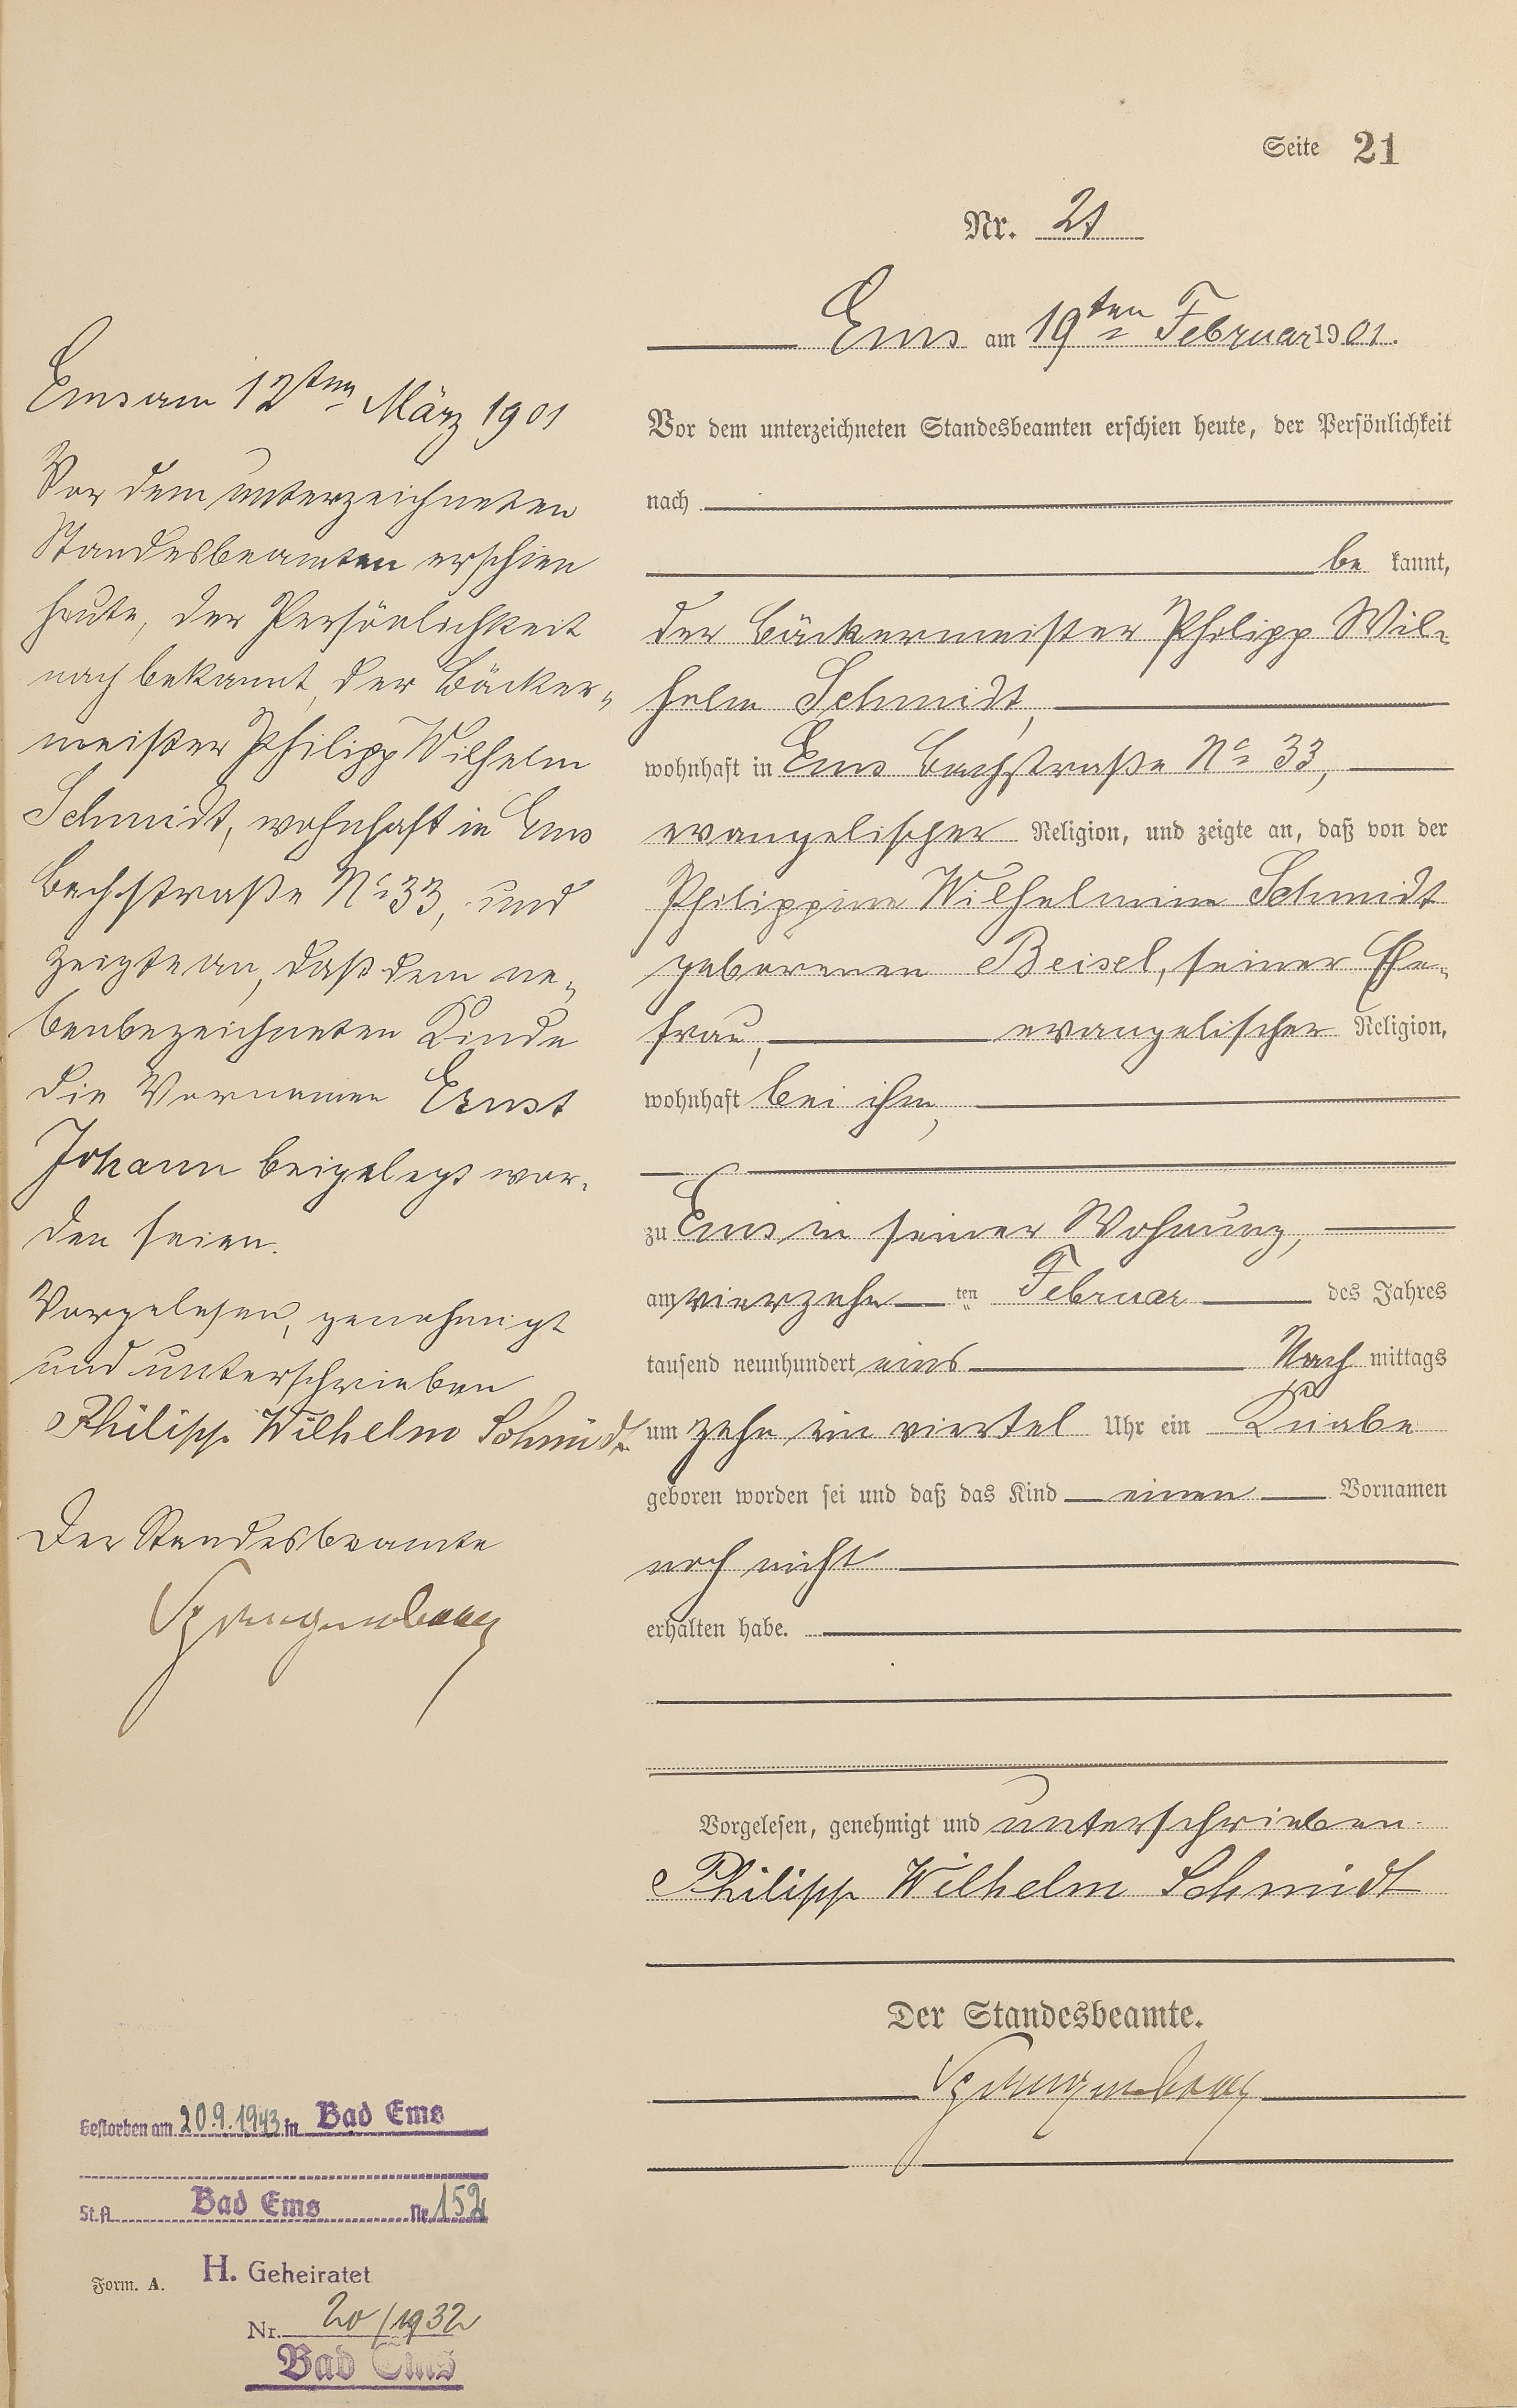 Seite 21
Nr. 21
Ems am 19ten Februar 1901.
Vor dem unterzeichneten Standesbeamten erschien heute, der Persönlichkeit
nach
be kannt,
der Bäckermeister Philipp Wil-
helm Schmidt,
wohnhaft in Ems Bachstraße No 33,
evangelischer Religion, und zeigte an, daß von der
Philippine Wilhelmine Schmidt
geborenen Beisel, seiner Ehe-
frau, evangelischer Religion,
wohnhaft bei ihm,
zu Ems in seiner Wohnung,
am vierzehn ten Februar des Jahres
tausend neunhundert eins Nach mittags
um zehn ein viertel Uhr ein Knabe
geboren worden sei und daß das Kind einen Vornamen
noch nicht
erhalten habe.
Vorgelesen, genehmigt und unterschrieben.
Philipp Wilhelm Schmidt
Der Standesbeamte.
Ems am 12ten März 1901
Vor dem unterzeichneten
Standesbeamten erschien
heute, der Persönlichkeit
nach bekannt, der Bäcker-
meister Philipp Wilhelm
Schmidt, wohnhaft in Ems
Bachstraße No 33, und
zeigte an, daß dem ne-
benbezeichneten Kinde
die Vornamen Ernst
Johann beigelegt wor-
den seien.
Vorgelesen, genehmigt
und unterschrieben
Philipp Wilhelm Schmidt
Der Standesbeamte
Gestorben am 20.9.1943 in Bad Ems
St.A. Bad Ems Nr. 152
Form. A.
H. Geheiratet
Nr. 20/1932
Bad Ems